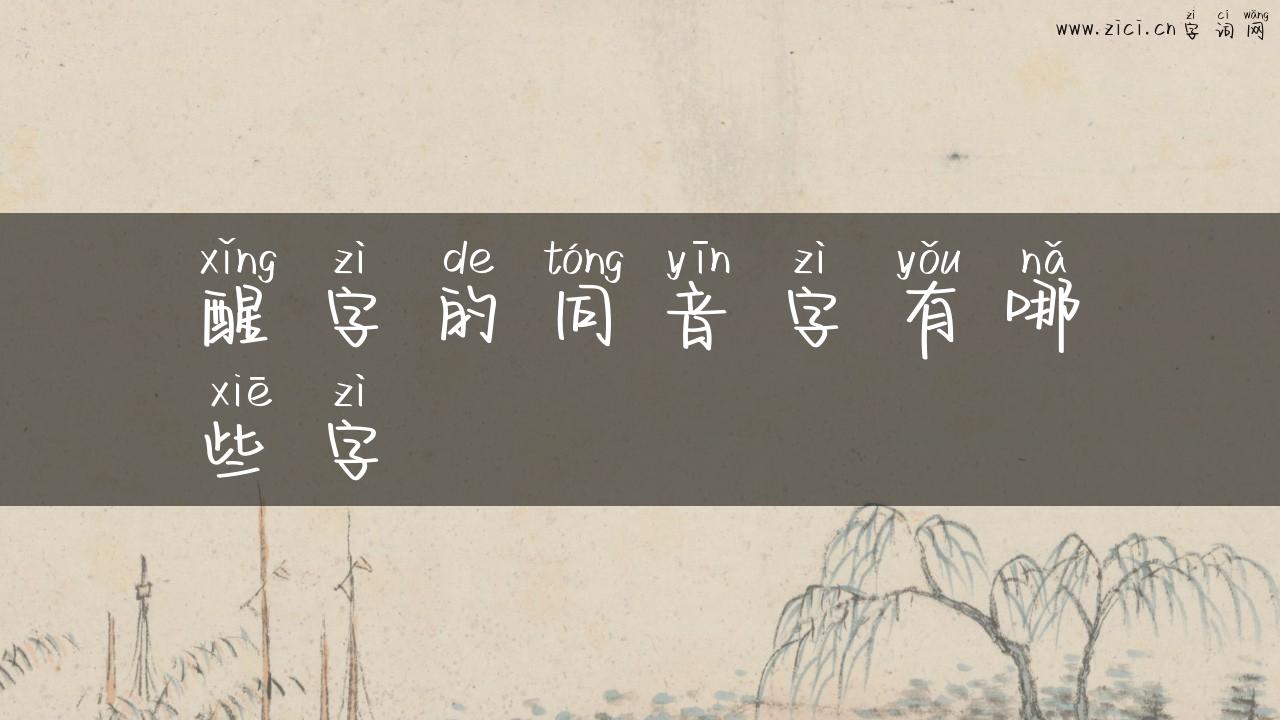 zì cí wǎng
www.zici.cn 字 词 网
xǐng zì de tóng yīn zì yǒu nǎ
醒 字 的 同 音 字 有 哪
xiē zì
些 字